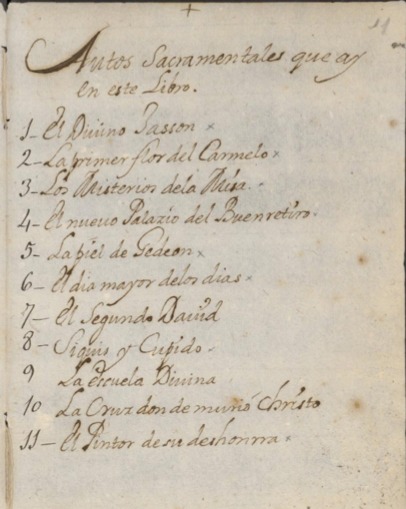 11
Autos Sacramentales que ay
en este Libro.
1- El Diuino Jasson
2- La primer flor del Carmelo
3- Los Misterios dela Misa.
4- El nuevo Palazio del Buenretiro.
5- La piel de Gedeon
6- El dia mayor delos dias
7- El Segundo Dauid
8- Siquis y Cupido.
9 La escuela Diuina
10 La Cruz don de murió Christo
11- El Pintor de su deshonrra